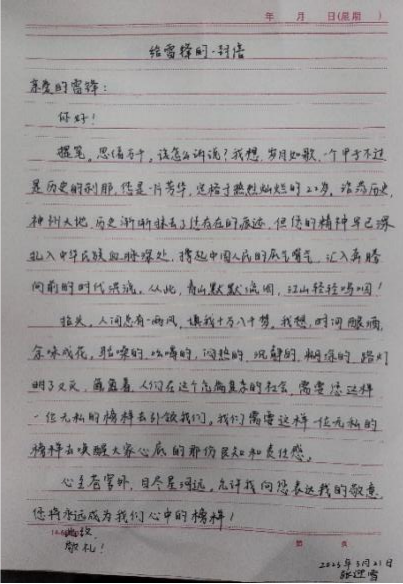 年 月 日(星期 )
给雷锋的一封信
亲爱的雷锋：
你好！
提笔，思绪万千，该怎么诉说？我想，岁月如歌，一个甲子不过
是历史的刹那，您是一片芳华，定格于热烈灿烂的22岁，沧茫历史，
神州大地，历史渐渐抹去了您存在的痕迹，但您的精神早已深
扎入中华民族血脉深处，撑起中国人民的底气勇气，汇入奔腾
向前的时代洪流。从此，青山默默流闻，江山轻轻呜咽！
抬头，人间总有一两风，填我十万八千梦，我想，时间
余味成花，的，吆喝的，闷热的，沉静的，的路灯
明了又灭，人们在这个危险复杂的社会，需要您这样
一位无私的榜样去引领我们，我们需要这样一位无私的
榜样去唤醒大家心底的那份良知和责任感。
心至苍穹外，目尽星河远，允许我向您表达我的敬意，
您将永远成为我们心中的榜样！
此致
敬礼！
第 页
2023年3月21日
张